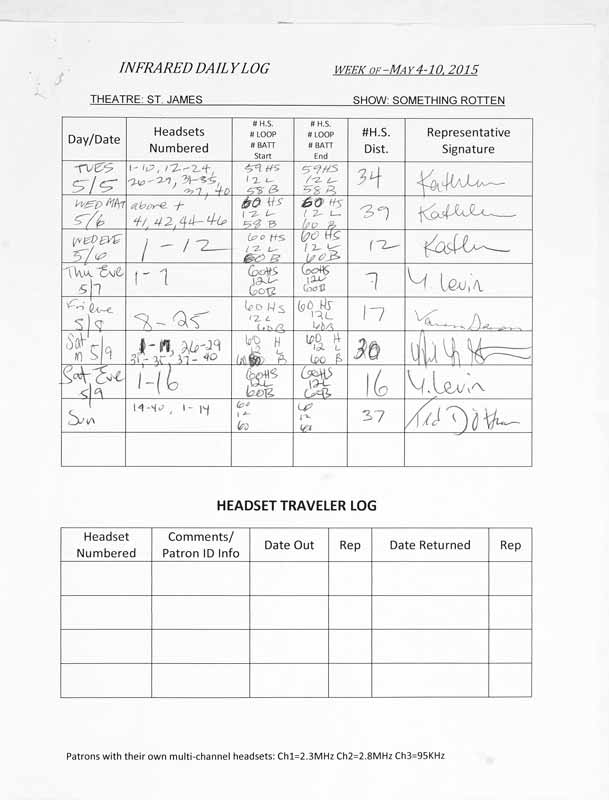 INFRARED DAILY LOG WEEK OF –MAY 4-10, 2015
THEATRE: ST. JAMES SHOW: SOMETHING ROTTEN
Day/Date Headsets Numbered # H.S. # LOOP # BATT Start # H.S. # LOOP # BATT End #H.S. Dist. Representative Signature
TUES 5/5 1-10, 12-24, 26-29, 31-35, 37, 40 59HS 12 L 58 B 59HS 12 L 58 B 34 Kathleen
WED MAT 5/6 above + 41, 42, 44-46 60 HS 12 L 58 B 60 HS 12 L 60 B 39 Kathleen
WED EVE 5/6 1-12 60 HS 12 L 60 B 60 HS 12 L 60B 12
Thu Eve 5/7 1-7 60HS 12L 60B 60HS 12L 60B 7 Y. Levin
Fri eve 5/8 8-25 60 HS 12 L 60B 60 HS 12L 60B 17
Sat m 5/9 26-29 31-35, 37-40 60 H 12 L B 60 H 12 L 60 B 30
Sat Eve 5/9 1-16 60HS 12L 60B 60HS 12L 60B 16 Y. Levin
Sun 14-40, 1-14 60 12 60 60 12 60 37 Ted
HEADSET TRAVELER LOG
Headset Numbered Comments/ Patron ID Info Date Out Rep Date Returned Rep
Patrons with their own multi-channel headsets: Ch1=2.3MHz Ch2=2.8MHz Ch3=95KHz